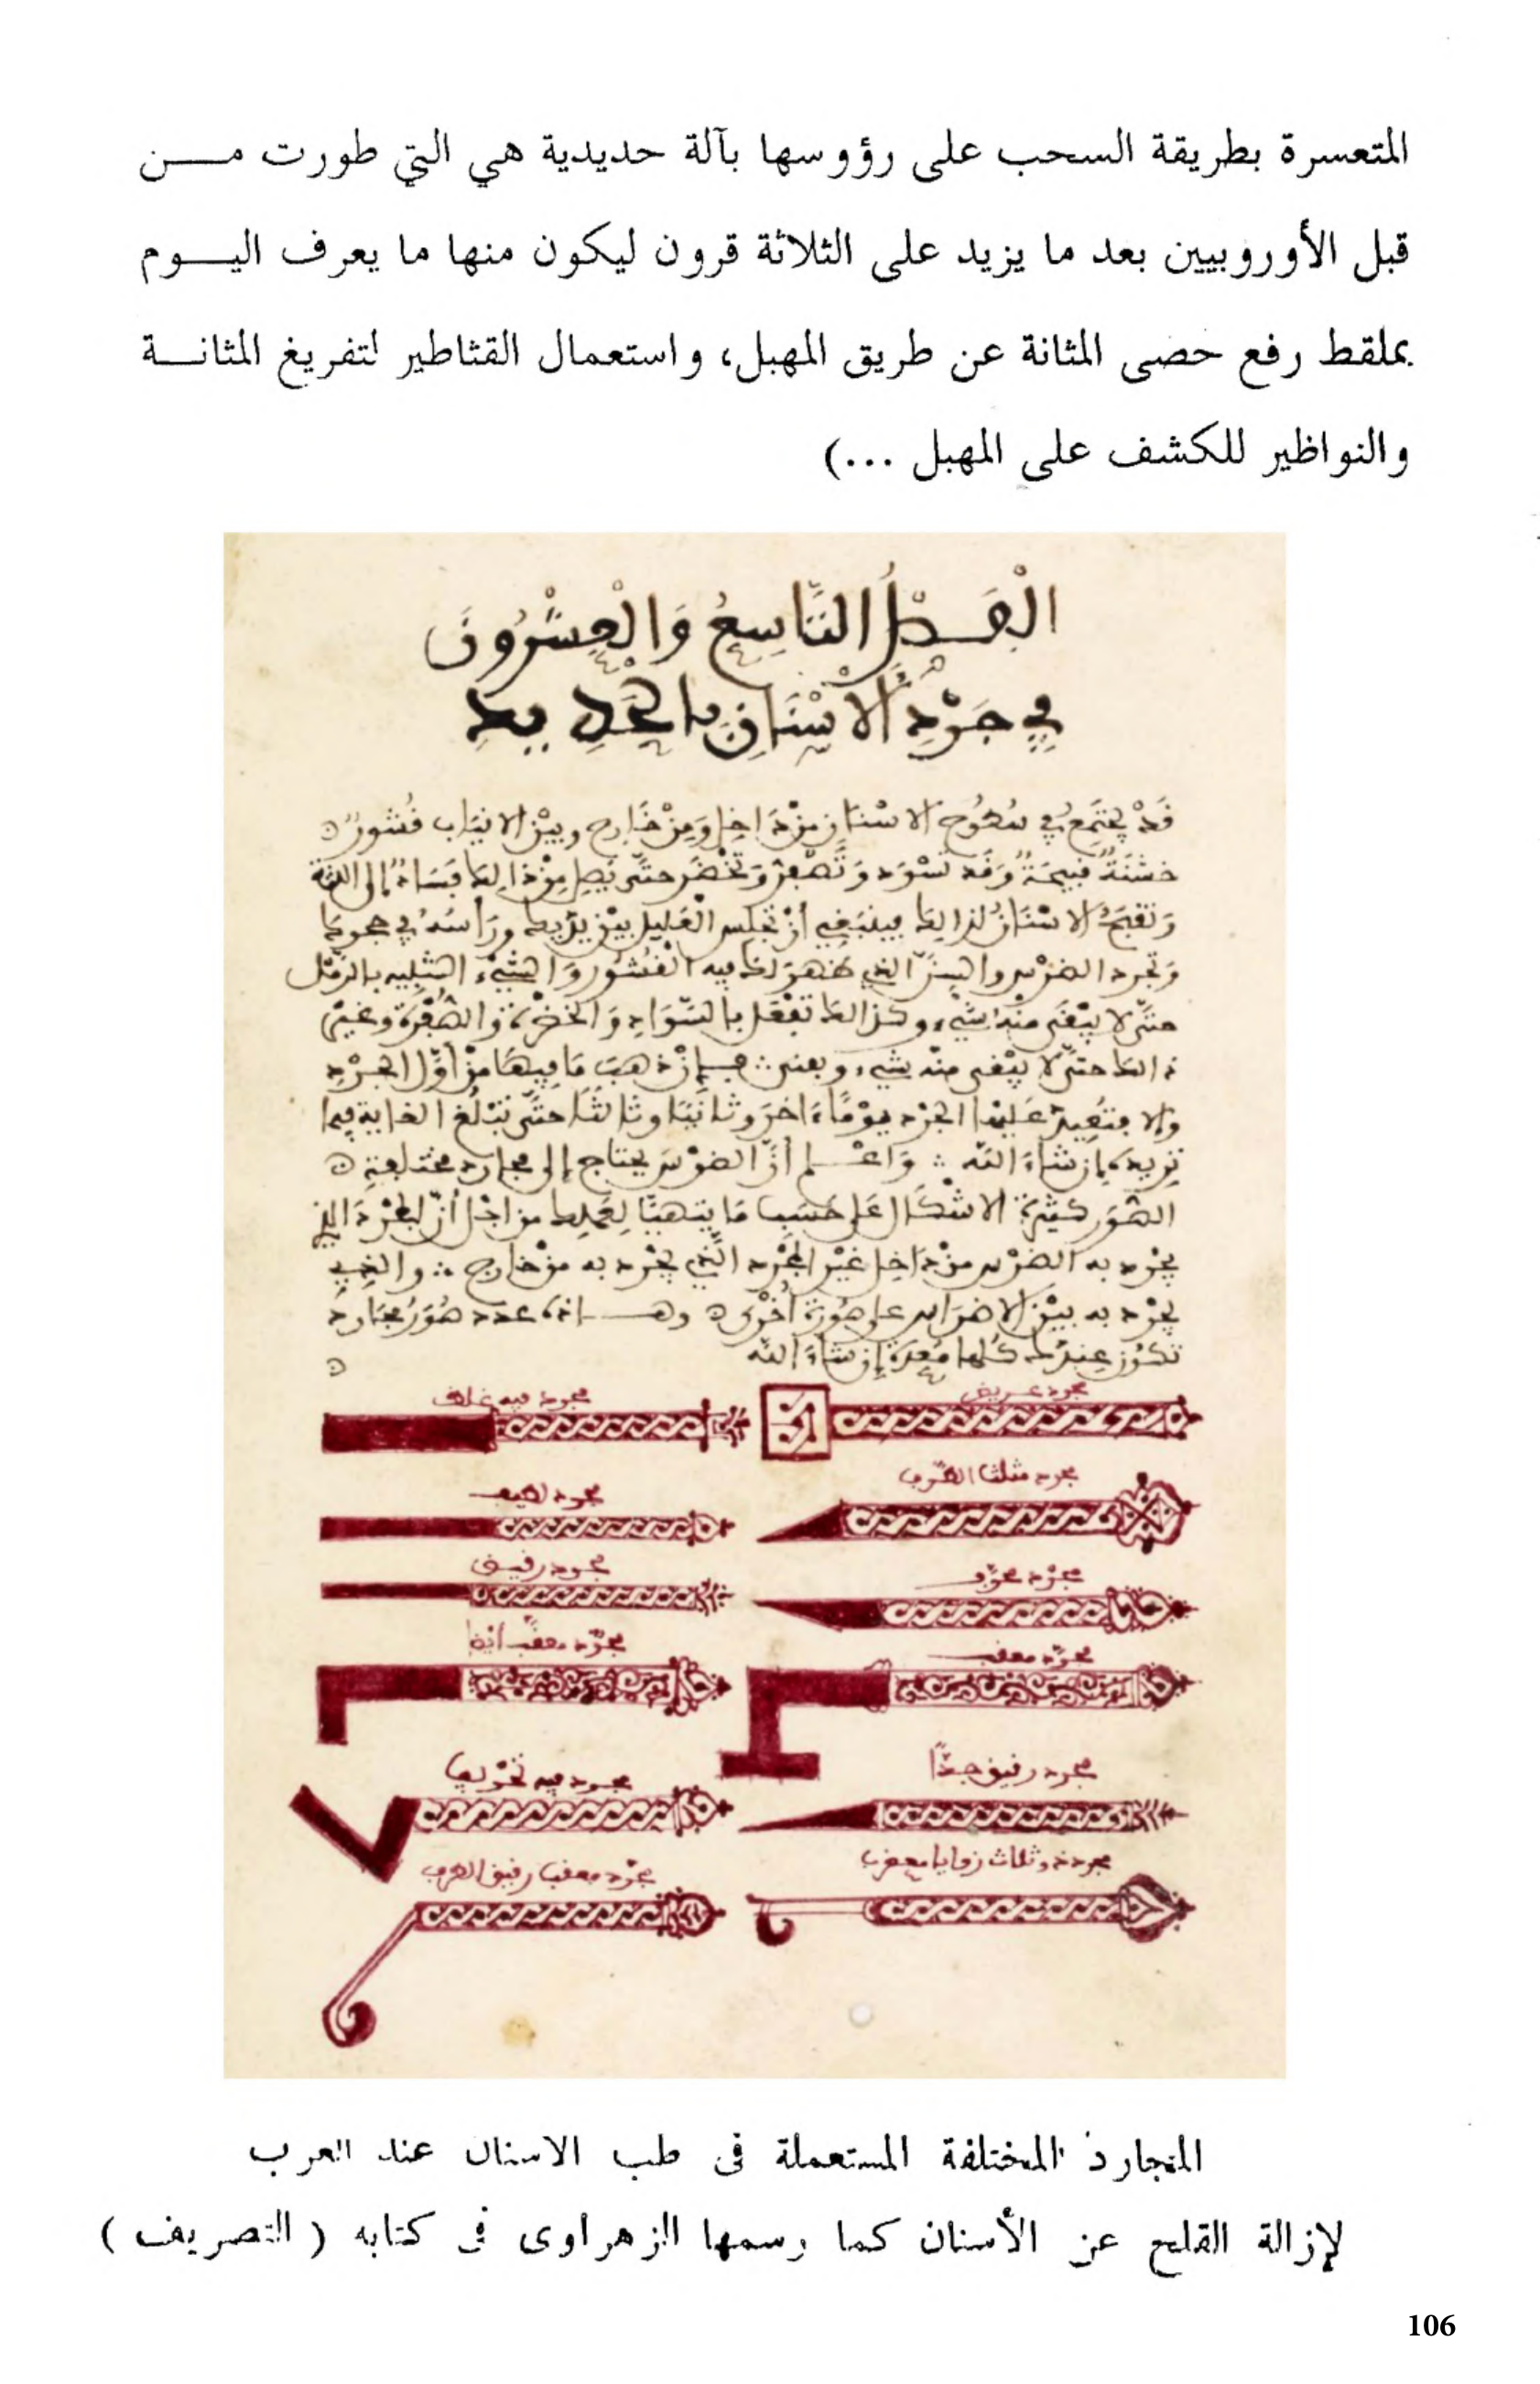 المتعسرة بطريقة السحب على رؤوسها بآلة حديدية هي التي طورت مـــن
قبل الأوروبيين بعد ما يزيد على الثلاثة قرون ليكون منها ما يعرف اليـــوم
بملقط رفع حصى المثانة عن طريق المهبل، واستعمال القثاطير لتفريغ المثانـــة
والنواظير للكشف على المهبل ...)
الْفَصْلُ التَّاسِعُ وَالْعِشْرُونَ
في جَرْدِ الأسْنَانِ بالحَدِيدِ
قَدْ يجْتَمِعُ في سُطُوحِ الاسْنَانِ مِنْ دَاخِل وَمِنْ خَارِج وبَيْن الانيَاب قُشُورٌ
خشنَةٌ قبيحَةٌ وَقَد تسْوَد وَتَصْفرّ وَتخْضَر حتَّى يَصِل مِنْ ذالك فسَادٌ إلى اللثة
وَتقبَحُ الاسْنَانُ لذالك فينبَغِي أنْ تجْلس الْعَليل بيْن يدَيك ورَأسُه في حجرك
وَتجرد الضرْس والسنّ الذي ظهرَ لك فيه القشُور وَالشيْء الشبيه بالرمْل
حتّى لا يبْقى منه شيْء وكذالك تفْعَل بالسّوَاد وَالخضْرة والصُّفْرَة وغيْر
ذالك حتّى لا يبْقى منه شيء وينقى فإنْ ذهبَ مَا فيهَا مِنْ أوّل الجرْدِ
وإلا فتُعِيد عَليْهَا الجرْد يوْمًا ءَاخرَ وثانيًا وثالثًا حتَّى تبْلُغ الغاية فيما
تريد إن شاءَ الله وَاعْلـم أنّ الضرْسَ يحتاج إلى مجارد مختلفة
الصّوَر كثيرَة الاشْكَال عَلى حَسَب مَا يتهيّأ لِعَملك من اجْل أنّ المجْرَد الذي
يجْرد به الضرْس مِنْ دَاخِل غيْر المجْرَد الَّذِي يجْرد به مِنْ خارج والذي
يجْرد به بيْن الاضرَاس على صُورَة أخْرى وهـــذه عدد صُوَر مجَارد
تكُون عِندَك كلها مُعدَّة إن شاءَ الله
مجرد عريض
مجرد فيه غلظ
مجرد مثلث الطرف
مجرد لطيف
مجرد رقيق
مجرد معقف أيضا
مجرد معقف
مجرد رقيق جدًّا
مجرد فيه تحْريف
مجرد ذو ثلاث زوايا
مجرد معقف رقيق الطرف
المجارد المختلفة المستعملة فى طب الاسنان عند العرب
لإزالة القلح عن الأسنان كما رسمها الزهراوى فى كتابه ( التصريف )
106